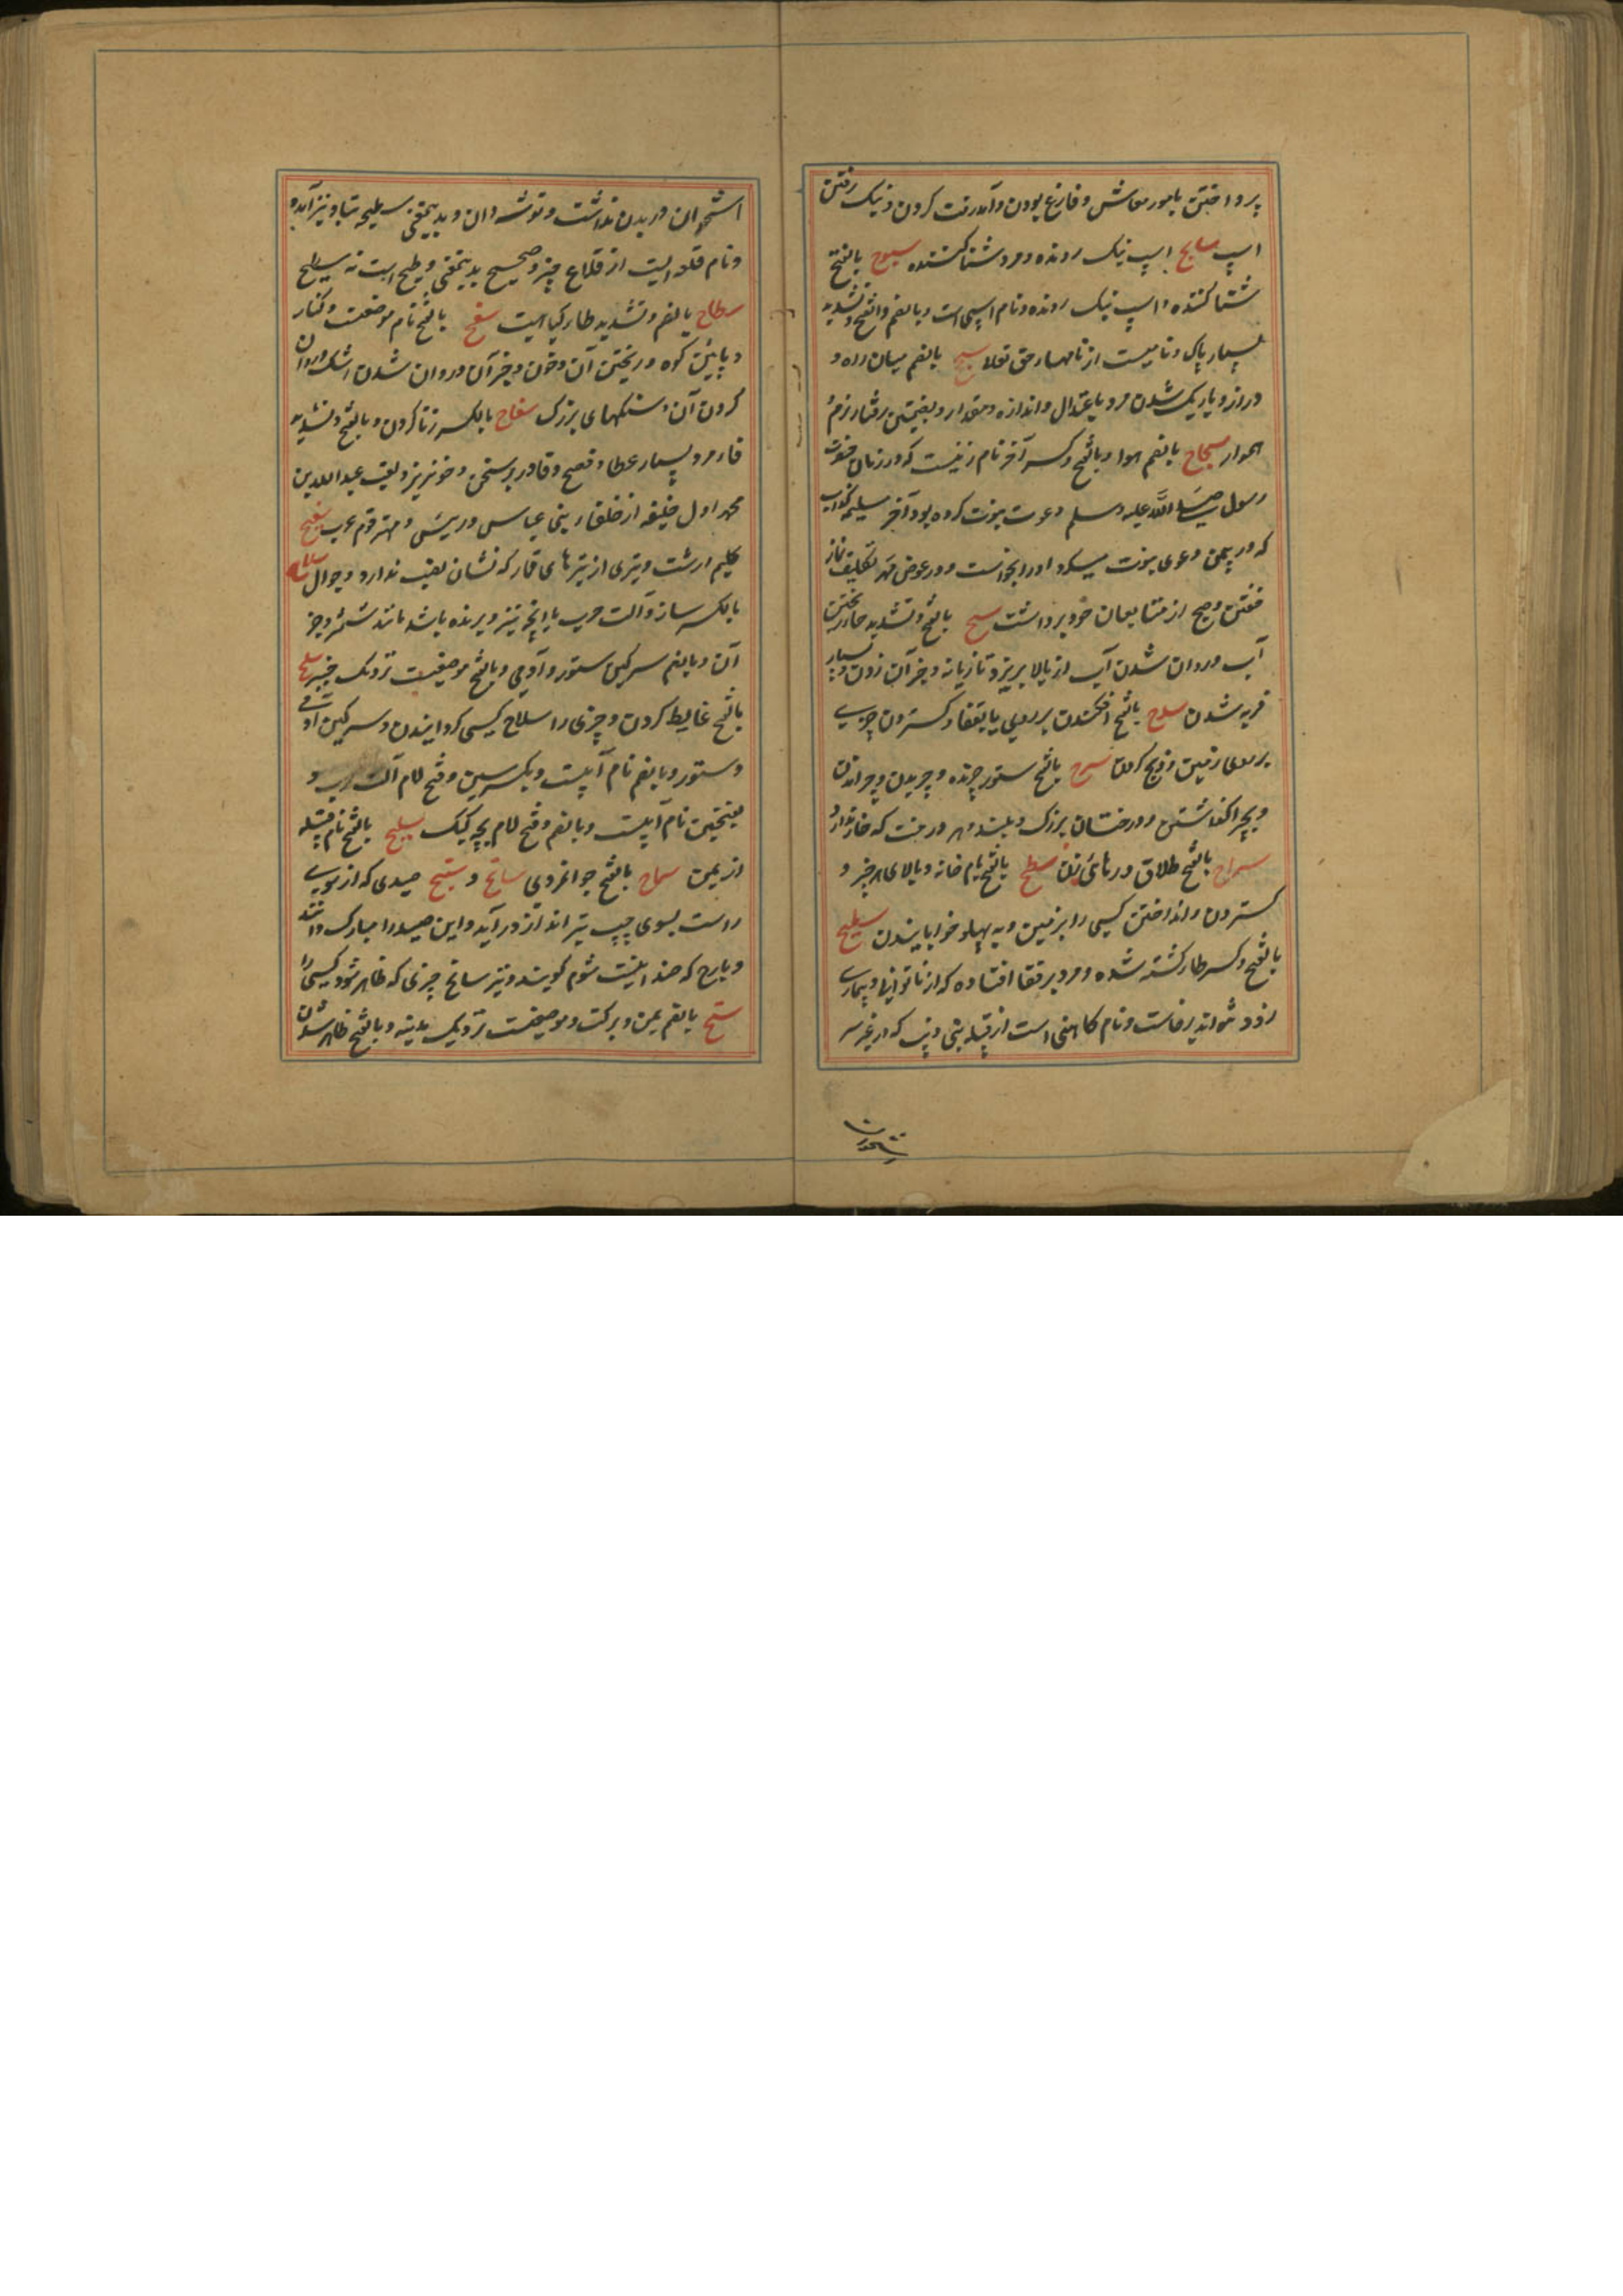 پرداختن بامور معاش و فارغ بودن و آمد رفت کردن و نیک رفتن
اسپ سابح اسپ نیک رونده و مرد شنا کننده سبوح بالفتح
شنا کننده و اسپ نیک رونده و نام اسپی است و بالضم والفتح و تشدید
بسیار پاک و نامیست از نامهاء حق تعلا سجح بالضم میان راه و
دراز و باریک شدن مرد باعتدال و اندازه و مقدار و بضمتین رفتار نرم و
هموار سجاح بالضم هوا و بالفتح و کسر آخر نام زنیست که در زمان حضرت
رسول صلی الله علیه وسلم دعوت نبوت کرده بود آخر مسیلمه کذاب
که در یمن دعوی نبوت میکرد او را بخواست و در عوض مهر تکلیف نماز
خفتن و صبح از متابعان خود برداشت سح بالفتح و تشدید حا ریختن
آب و روان شدن آب از بالا بریز و تازیانه و جز آن زدن و بسیار
فربه شدن سدح بالفتح افکندن بر روی یا بقفا و گستردن چیزی
بر روی زمین و ذبح کردن سرح بالفتح ستور چرنده و چریدن و چراندن
و بچرا گذاشتن و درختان بزرگ و بلند و هر درخت که خار ندارد
سراح بالفتح طلاق و رهائی زن سطح بالفتح بام خانه و بالای هر چیز و
گستردن و انداختن کسی را بر زمین و به پهلو خوابانیدن سطیح
بالفتح و کسر طا کشته شده و مرد بر قفا افتاده که از ناتوانی و بیماری
زود نتواند برخاست و نام کاهنی است از قبیله بنی ذیب که در غیر سر
استخوان در بدن نداشت و توشه دان و بدینمعنی سطیحه بتا و نیز آمده
و نام قلعه ایست از قلاع خیبر و صحیح بدینمعنی وطیح است نه سطیح
سطاح بالضم و تشدید طا گیاهیست سفح بالفتح نام موضعیست و کنار
و پائین کوه و ریختن آب و خون و جز آن و روان شدن اشک و روان
کردن آن و سنگهای بزرگ سفاح بالکسر زنا کردن و بالفتح و تشدید
فا مرد بسیار عطا و فصیح و قادر بر سخن و خونریز و لقب عبد الله بن
محمد اول خلیفه از خلفاء بنی عباس و رییس و مهتر قوم عرب سفیح
گلیم درشت و تیری از تیرهای قمار که نشان نصیب ندارد و جوال سلاح
بالکسر ساز و آلت حرب یا آنچه تیز و برنده باشد مانند شمشیر و جز
آن و بالضم سرگین ستور و آدمی و بالفتح موضعیست نزدیک خیبر سلح
بالفتح غایط کردن و چیزی را سلاح کسی گردانیدن و سرگین آدمی
و ستور و بالضم نام آبیست و بکسر سین و فتح لام آلت حرب و
بفتحتین نام آبیست و بالضم و فتح لام بچه کبک سلیح بالفتح نام قبیله
از یمن سماح بالفتح جوانمردی سانح و سنیح صیدی که از سوی
راست بسوی چپ تیر انداز در آید و این صید را مبارک دانند
و بارح که ضد اینست شوم گویند و نیز سانح چیزی که ظاهر شود کسی را
سنح بالضم یمن و برکت و موضعیست نزدیک مدینه و بالفتح ظاهر شدن
استخوان